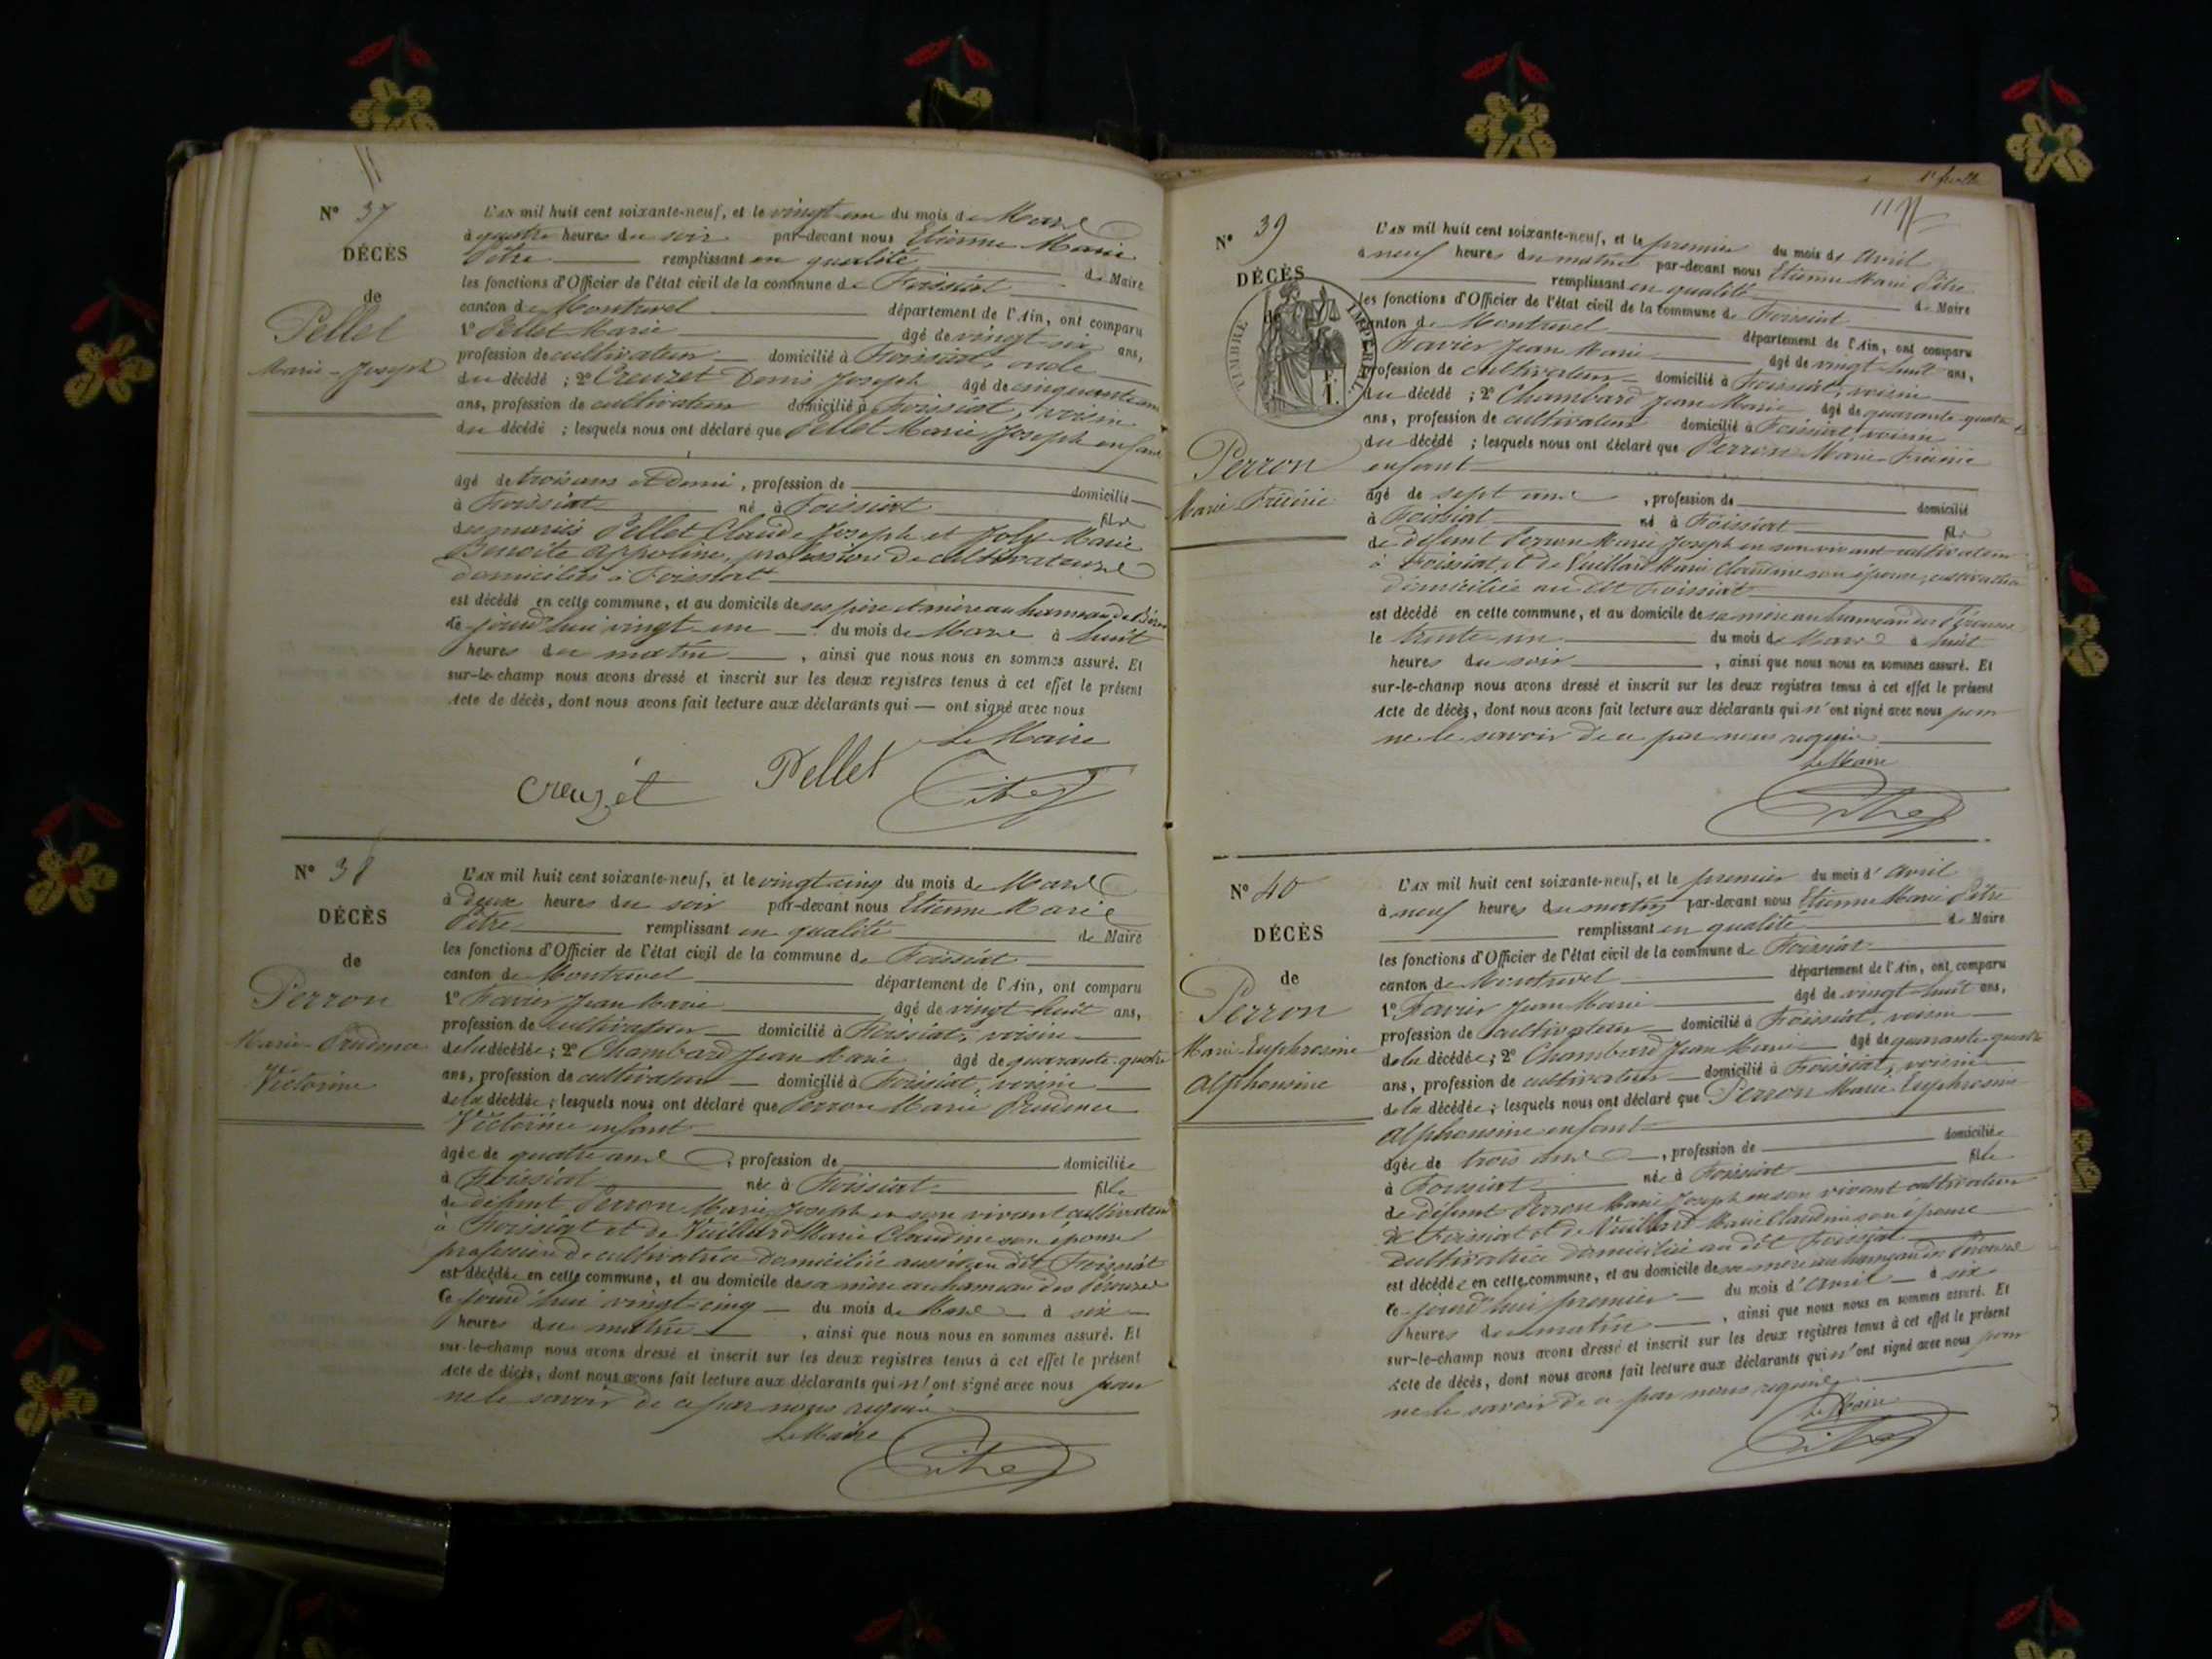 N° 37
DÉCÈS
de
Pellet
Marie-Joseph
L'AN mil huit cent soixante-neuf, et le vingt un du mois de Mars
à quatre heures du soir par-devant nous Etienne Marie
Pitre remplissant en qualité de Maire
les fonctions d'Officier de l'état civil de la commune de Foissiat
canton de Montrevel département de l'Ain, ont comparu
1° Pellet Marie âgé de vingt six ans,
profession de cultivateur domicilié à Foissiat, oncle
du décédé ; 2° Creuzet Denis Joseph âgé de cinquante un
ans, profession de cultivateur domicilié à Foissiat, voisin
du décédé ; lesquels nous ont déclaré que Pellet Marie Joseph enfant
âgé de trois ans et demi, profession de domicilié
à Foissiat né à Foissiat fils
des mariés Pellet Claude Joseph et Joly Marie
Benoite Appoline, profession de cultivateurs
domiciliés à Foissiat
est décédé en cette commune, et au domicile de ses père et mère au hameau de
ce jourd'hui vingt-un du mois de Mars à huit
heures du matin, ainsi que nous nous en sommes assuré. Et
sur-le-champ nous avons dressé et inscrit sur les deux registres tenus à cet effet le présent
Acte de décès, dont nous avons fait lecture aux déclarants qui — ont signé avec nous
Le Maire
Creuzet Pellet Pitre
N° 38
DÉCÈS
de
Perron
Marie-Prudence
Victorine
L'AN mil huit cent soixante-neuf, et le vingt cinq du mois de Mars
à deux heures du soir par-devant nous Etienne Marie
Pitre remplissant en qualité de Maire
les fonctions d'Officier de l'état civil de la commune de Foissiat
canton de Montrevel département de l'Ain, ont comparu
1° Favier Jean Marie âgé de vingt huit ans,
profession de cultivateur domicilié à Foissiat, voisin
de la décédée ; 2° Chambard Jean Marie âgé de quarante-quatre
ans, profession de cultivateur domicilié à Foissiat, voisin
de la décédée ; lesquels nous ont déclaré que Perron Marie Prudence
Victorine enfant
âgée de quatre ans, profession de domiciliée
à Foissiat née à Foissiat fille
de défunt Perron Marie Joseph en son vivant cultivateur
à Foissiat et de Vuillard Marie Claudine son épouse
profession de cultivatrice domiciliée aussi au dit Foissiat
est décédée en cette commune, et au domicile de sa mère au hameau des
ce jourd'hui vingt-cinq du mois de Mars à six
heures du matin, ainsi que nous nous en sommes assuré. Et
sur-le-champ nous avons dressé et inscrit sur les deux registres tenus à cet effet le présent
Acte de décès, dont nous avons fait lecture aux déclarants qui n'ont signé avec nous pour
ne le savoir de ce par nous requis
Le Maire
Pitre
N° 39
DÉCÈS
de
TIMBRE IMPÉRIAL
Perron
Marie
L'AN mil huit cent soixante-neuf, et le premier du mois de Avril
à neuf heures du matin par-devant nous Etienne Marie Pitre
remplissant en qualité de Maire
les fonctions d'Officier de l'état civil de la commune de Foissiat
canton de Montrevel département de l'Ain, ont comparu
Favier Jean Marie âgé de vingt-huit ans,
profession de cultivateur domicilié à Foissiat, voisin
du décédé ; 2° Chambard Jean Marie âgé de quarante-quatre
ans, profession de cultivateur domicilié à Foissiat, voisin
du décédé ; lesquels nous ont déclaré que Perron Marie
enfant
âgé de sept ans, profession de domicilié
à Foissiat né à Foissiat fils
de défunt Perron Marie Joseph en son vivant cultivateur
à Foissiat et de Vuillard Marie Claudine son épouse, cultivatrice
domiciliée au dit Foissiat
est décédé en cette commune, et au domicile de sa mère au hameau des
le trente-un du mois de Mars à huit
heures du soir, ainsi que nous nous en sommes assuré. Et
sur-le-champ nous avons dressé et inscrit sur les deux registres tenus à cet effet le présent
Acte de décès, dont nous avons fait lecture aux déclarants qui n'ont signé avec nous pour
ne le savoir de ce par nous requis
Le Maire
Pitre
N° 40
DÉCÈS
de
Perron
Marie-Euphrosine
Alphonsine
L'AN mil huit cent soixante-neuf, et le premier du mois d'Avril
à neuf heures du matin par-devant nous Etienne Marie Pitre
remplissant en qualité de Maire
les fonctions d'Officier de l'état civil de la commune de Foissiat
canton de Montrevel département de l'Ain, ont comparu
1° Favier Jean Marie âgé de vingt-huit ans,
profession de cultivateur domicilié à Foissiat, voisin
de la décédée ; 2° Chambard Jean Marie âgé de quarante-quatre
ans, profession de cultivateur domicilié à Foissiat, voisin
de la décédée ; lesquels nous ont déclaré que Perron Marie Euphrosine
Alphonsine enfant
âgée de trois ans, profession de domiciliée
à Foissiat née à Foissiat fille
de défunt Perron Marie Joseph en son vivant cultivateur
à Foissiat et de Vuillard Marie Claudine son épouse
cultivatrice domiciliée au dit Foissiat
est décédée en cette commune, et au domicile de sa mère au hameau des
ce jourd'hui premier du mois d'Avril à six
heures du matin, ainsi que nous nous en sommes assuré. Et
sur-le-champ nous avons dressé et inscrit sur les deux registres tenus à cet effet le présent
Acte de décès, dont nous avons fait lecture aux déclarants qui n'ont signé avec nous pour
ne le savoir de ce par nous requis
Le Maire
Pitre